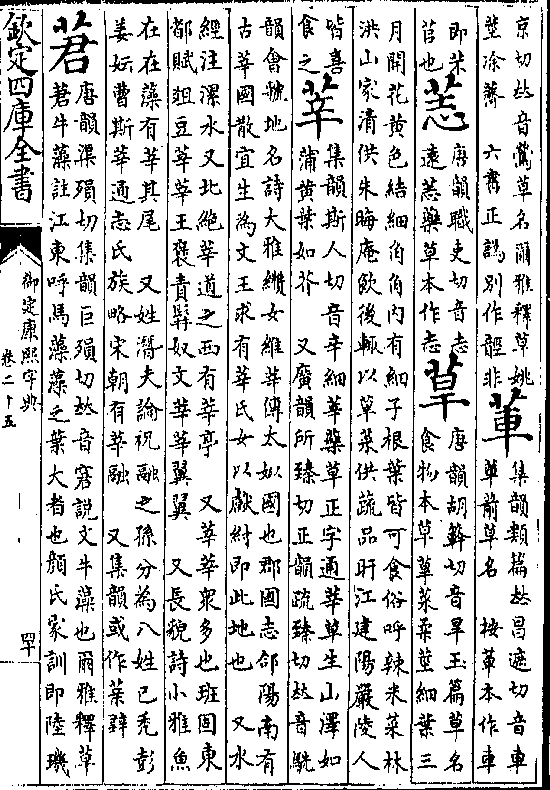 京切𠀤音鶯草名爾雅釋草姚
莖涂薺 六書正譌別作䯒非
莗
集韻類篇𠀤昌遮切音車
莗前草名 按莗本作車
即芣
苢也
䓌
唐韻職吏切音志
遠䓌藥草本作志
䓍
唐韻胡簳切音旱玉篇草名
食物本草䓍菜柔莖細葉三
月開花黄色結細角角内有細子根葉皆可食俗呼辣米菜林
洪山家清供朱晦庵飲後輒以䓍菜供蔬品盱江建陽嚴陵人
皆喜
食之
莘
集韻斯人切音辛細莘藥草正字通莘草生山澤如
蒲黄葉如芥 又廣韻所臻切正韻疏臻切𠀤音駪
韻會虢地名詩大雅纘女維莘傳太姒國也郡國志郃陽南有
古莘國散宜生為文王求有莘氏女以獻紂即此地也 又水
經注漯水又北絶莘道之西有莘亭 又莘莘衆多也班固東
都賦俎豆莘莘王褒責髯奴文莘莘翼翼 又長貌詩小雅魚
在在藻有莘其尾 又姓潛夫論祝融之孫分為八姓己秃彭
姜妘曹斯莘通志氏族略宋朝有莘融 又集韻或作
莙
唐韻渠殞切集韻巨殞切𠀤音窘説文牛藻也爾雅釋草
莙牛藻註江東呼馬藻藻之葉大者也顔氏家訓即陸璣
欽定四庫全書
御定康熙字典
卷二十五